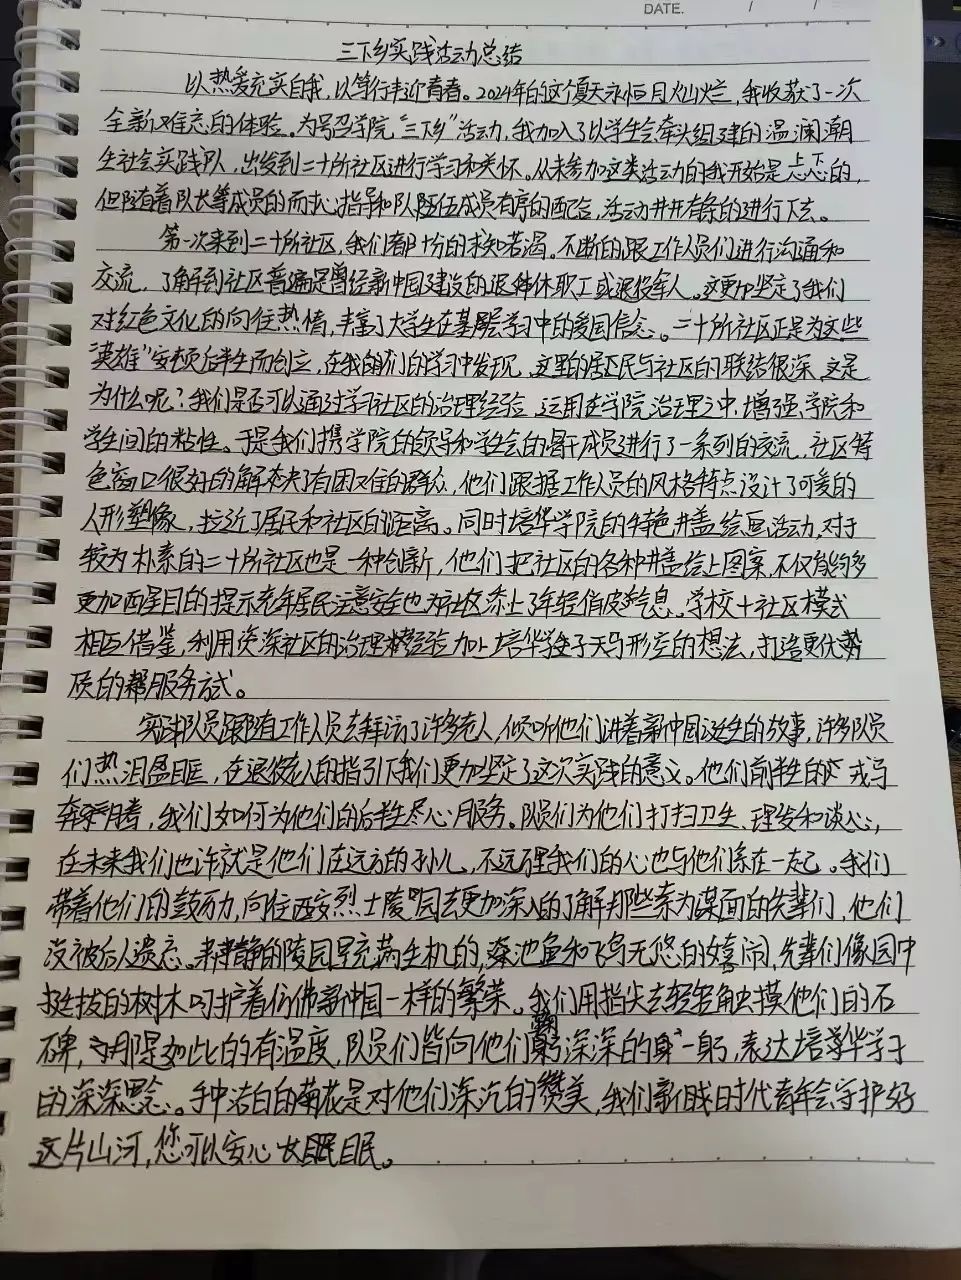 DATE. / /
三下乡实践活动总结
以热爱充实自我，以笃行丰迎青春。2024年的这个夏天永恒且灿烂，我收获了一次
全新难忘的体验。为号召学院“三下乡”活动，我加入了以学生会牵头组建的温澜潮
生社会实践队，出发到二十所社区进行学习和关怀。从未参加这类活动的我开始是忐忑的，
但随着队长等成员的耐心指导和队伍成员有序的配合，活动井井有条的进行下去。
第一次来到二十所社区，我们都十分的求知若渴。不断的跟工作人员们进行沟通和
交流，了解到社区普遍是曾经新中国建设的退休职工或退役军人。这更加坚定了我们
对红色文化的向往热情，丰富了大学生在基层学习中的爱国信念。二十所社区正是为这些
“英雄”安顿后半生而创立，在我们的学习中发现，这里的居民与社区的联结很深，这是
为什么呢？我们是否可以通过学习社区的治理经验，运用在学院治理之中，增强学院和
学生间的粘性。于是我们携学院的领导和学生会的骨干成员进行了一系列的交流，社区特
色窗口很好的解决了有困难的群众，他们跟据工作人员的风格特点设计了可爱的
人形塑像，拉近了居民和社区的距离。同时培华学院的特色井盖绘画活动，对于
较为朴素的二十所社区也是一种创新，他们把社区的各种井盖绘上图案，不仅能够多
更加醒目的提示老年居民注意安全也为社区添上了年轻俏皮气息。学校+社区模式
相互借鉴，利用资深社区的治理经验加上培华学子天马形空的想法，打造更优势
质的帮服务方式。
实践队员跟随工作人员去拜访了许多老人，倾听他们讲着新中国诞生的故事，许多队员
们热泪盈眶，在退役老人的指引下我们更加坚定了这次实践的意义。他们前半生的 戎马
奔腾，我们如何为他们的后半生尽心服务。队员们为他们打扫卫生、理发和谈心，
在未来我们也许就是他们在远方的孙儿，不远万里我们的心也与他们系在一起。我们
带着他们的鼓励，向往西安烈士陵园去更加深入的了解那些素为谋面的先辈们，他们
没被后人遗忘。静静的陵园里充满生机的，深池鱼和飞鸟无忧的嬉闹，先辈们像园中
挺拔的树木呵护着仿佛新中国一样的繁荣。我们用指尖去轻轻触摸他们的石
碑，才那是如此的有温度，队员们皆向他们鞠深深的身一躬，表达培华学子
的深深思念。手中洁白的菊花是对他们深沉的赞美，我们新时代青年会守护好
这片山河，您可以安心长眠。